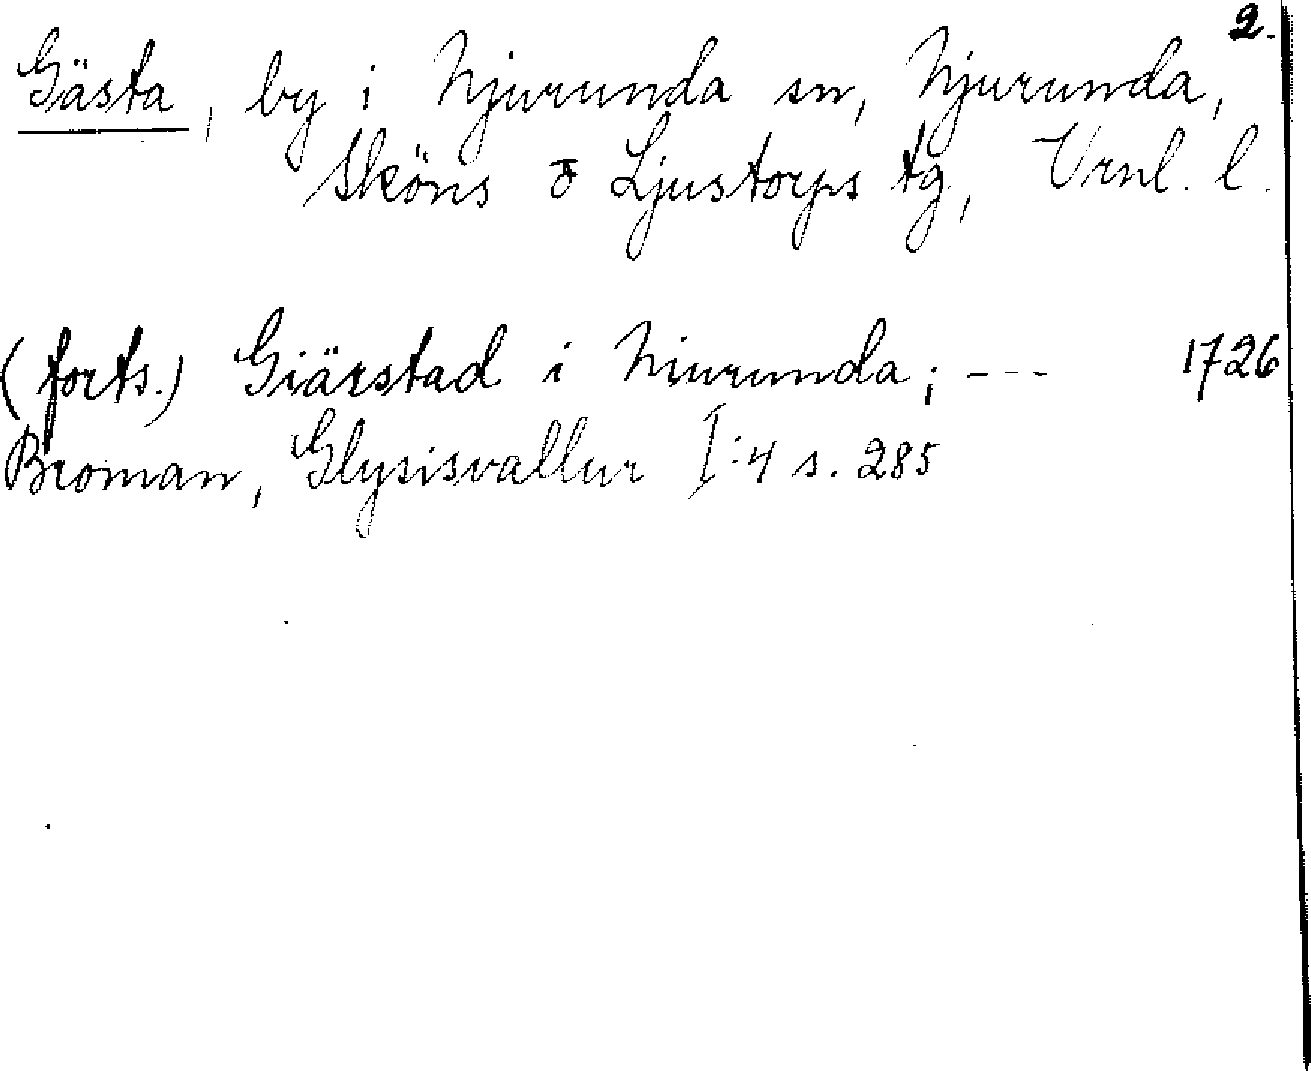 2.
Gästa, by i Njurunda sn, Njurunda,
Sköns o Ljustorps tg, Vrnl. l.
(forts.) Giärstad i Niurunda; --- 1726
Broman, Glysisvallur I:4 s. 285